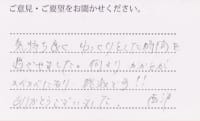 ご意見・ご要望をお聞かせください。
気持ち良く ゆったりとした時間を
過ごせました。何より カカトが
スベスベになり 感激です!!
ありがとうございました。